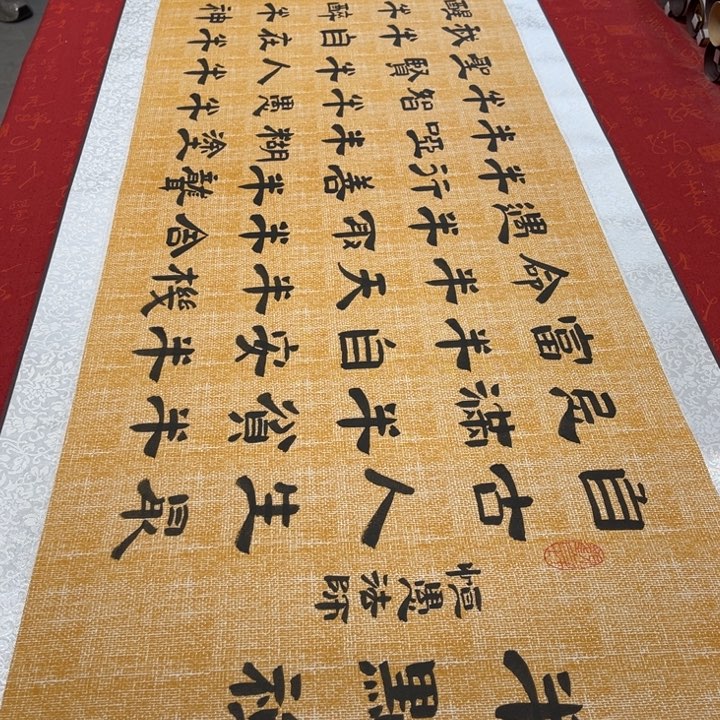 自古人生最
忌滿半貧半
富半自安半
命半天半機
遇半取半舍
半行善半聾
半啞半糊塗
半智半愚半
聖賢半人半
我半自在半
醒半醉半神
恒愚法師